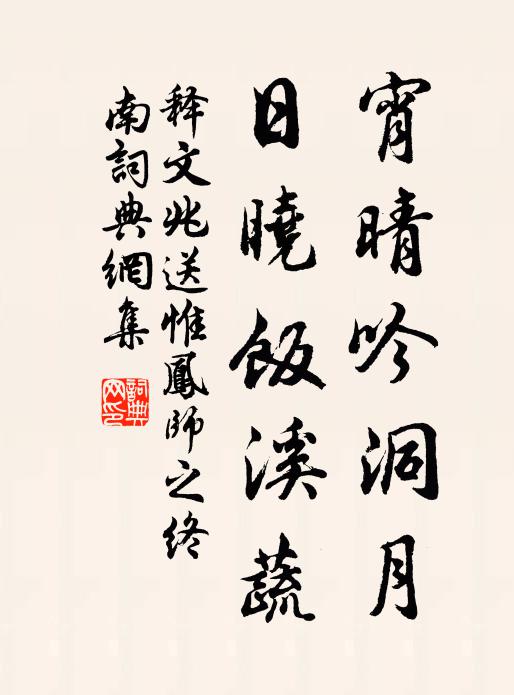 宵晴吟洞月
日曉飯溪蔬
释文兆送惟鳳師之终
南詞典網集
詞典网印